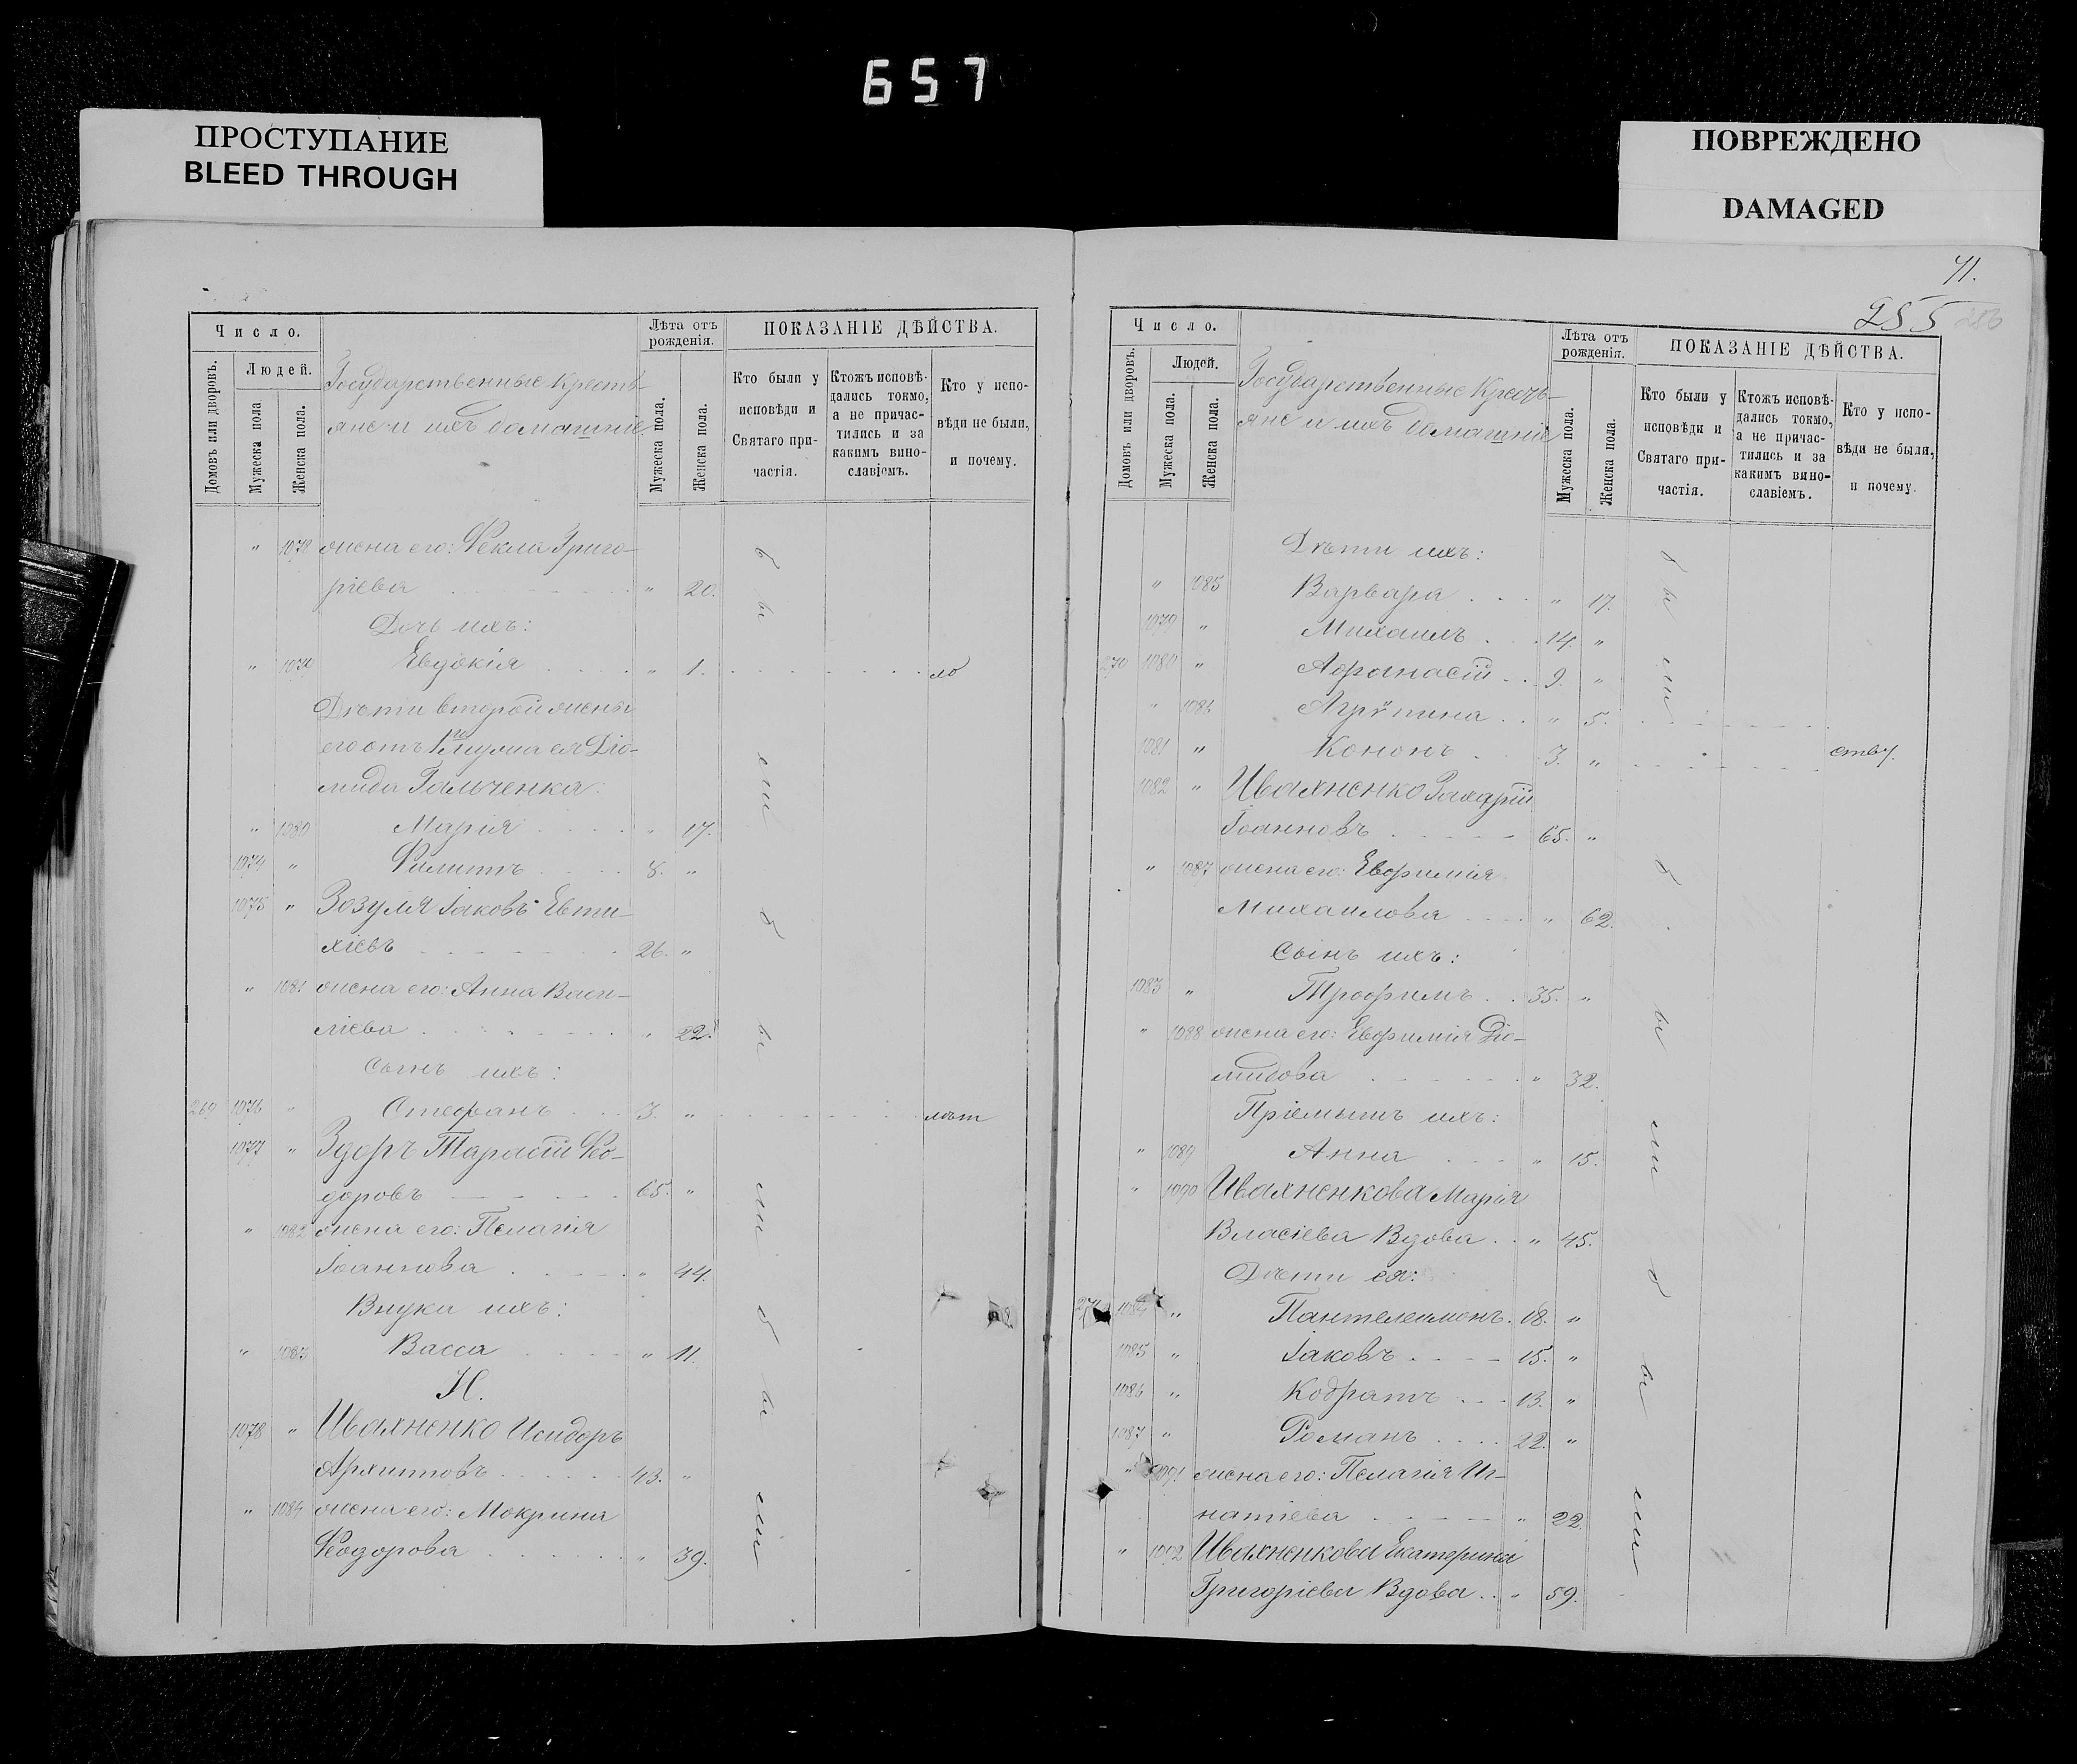 657
ПРОСТУПАНИЕ
BLEED THROUGH
ПОВРЕЖДЕНО
DAMAGED
Число.
Домовъ или дворовъ.
Людей.
Мужеска пола
Женска пола.
Государственные Кресть-
яне и ихъ домашніе
Лѣта отъ рожденія.
Мужеска пола.
Женска пола.
ПОКАЗАНІЕ ДѢЙСТВА.
Кто были у исповѣди и Святаго при-частія.
Ктожъ исповѣ-дались токмо, а не причас-тились и за какимъ вино-славіемъ.
Кто у испо-вѣди не были, и почему.
" 1078 жена его: Ѳекла Григо-
ріева " 20.
Дочь ихъ:
" 1079 Евдокія " 1. ло
Дѣти второй жены
его отъ 1го мужа ея Діо-
мида Гальченка:
" 1080 Марія " 17.
1074 " Филиппъ 8. "
1075 " Зозуля Іаковъ Евти-
хіевъ 26. "
" 1081 жена его: Анна Васи-
ліева " 22.
Сынъ ихъ:
269 1076 " Стефанъ 3. " лѣт
1077 " Здоръ Тарасій Ѳео-
доровъ 65. "
" 1082 жена его: Пелагія
Іоаннова " 44.
Внука ихъ:
" 1083 Васса " 11.
И.
1078 " Ивахненко Исидоръ
Архиповъ 43. "
" 1084 жена его: Мокрина
Ѳеодорова " 39.
бы
ли
бы
ли
бы
ли
41.
255
Число.
Домовъ или дворовъ.
Людей.
Мужеска пола.
Женска пола.
Государственные Кресть-
яне и ихъ домашніе
Лѣта отъ рожденія.
Мужеска пола.
Женска пола.
ПОКАЗАНІЕ ДѢЙСТВА.
Кто были у исповѣди и Святаго при-частія.
Ктожъ исповѣ-дались токмо, а не причас-тились и за какимъ вино-славіемъ.
Кто у испо-вѣди не были, и почему.
Дѣти ихъ:
" 1085 Варвара " 17.
1079 " Михаилъ 14. "
270 1080 " Аѳанасій 9. "
" 1086 Агрипина " 5.
1081 " Кононъ 3. " ству.
1082 " Ивахненко Захарій
Іоанновъ 65. "
" 1087 жена его: Евфимія
Михаилова " 62.
Сынъ ихъ:
1083 " Трофимъ 35. "
" 1088 жена его: Евфимія Діо-
мидова " 32.
Пріемышъ ихъ:
" 1089 Анна " 15.
" 1090 Ивахненкова Марія
Власіева Вдова " 45.
Дѣти ея:
271 1084 " Пантелеимонъ 18. "
1085 " Іаковъ 15. "
1086 " Кодратъ 13. "
1087 " Романъ 22. "
" 1091 жена его: Пелагія Иг-
натіева " 22.
" 1092 Ивахненкова Екатерина
Григоріева Вдова " 59.
бы
ли
бы
ли
бы
ли